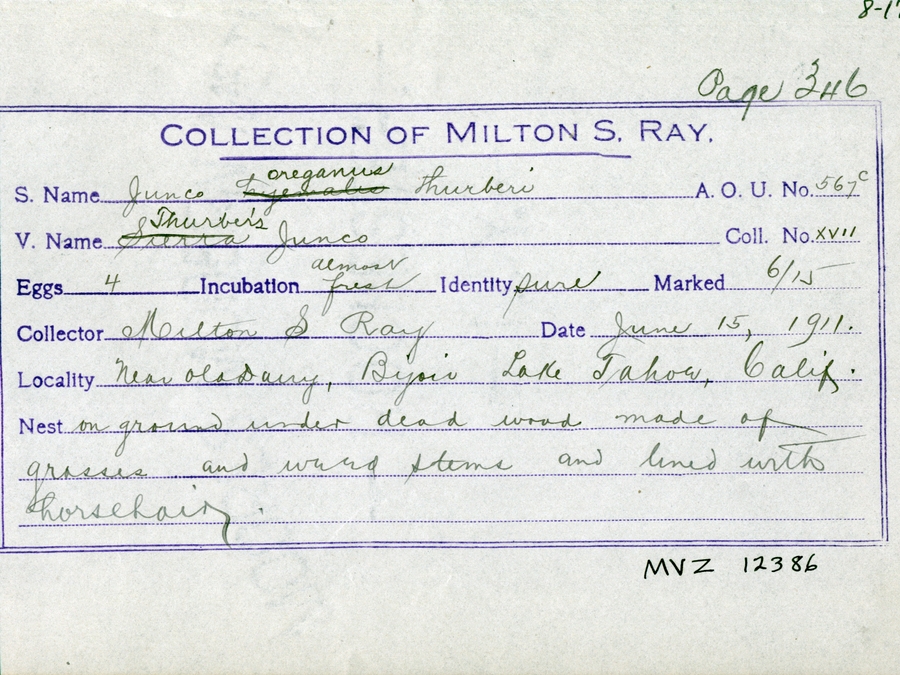 8-17
Page 346
COLLECTION OF MILTON S. RAY.
oreganus
S. Name Junco hyemalis thurberi A. O. U. No. 567c
Thurber's
V. Name Sierra Junco Coll. No. XVII
almost
Eggs 4 Incubation fresh Identity pure Marked 6/15
Collector Milton S Ray Date June 15, 1911.
Locality Near old Dairy, Bijou Lake Tahoe, Calif.
Nest on ground under dead wood made of
grasses and weed stems and lined with
horsehair.
MVZ 12386